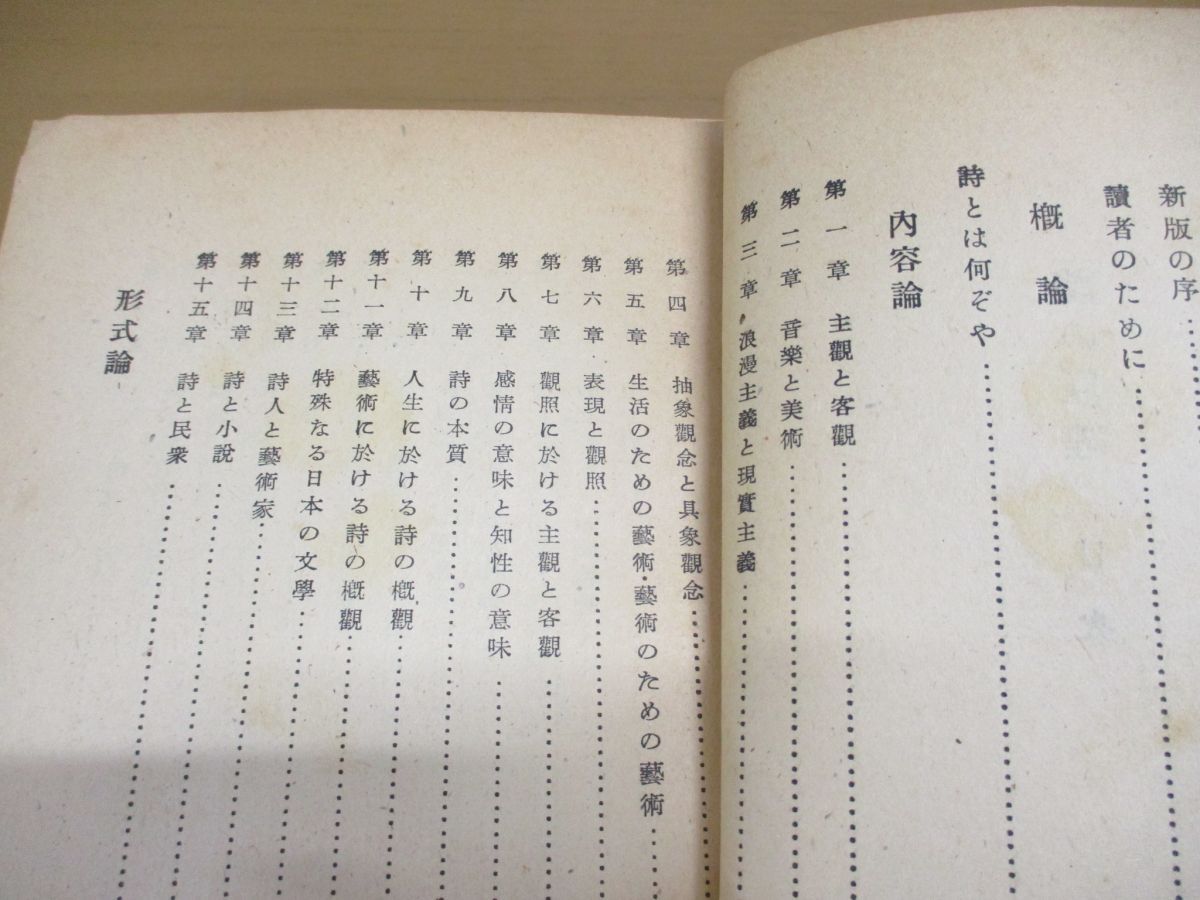 新版の序…………
讀者のために…………
概論
詩とは何ぞや…………
內容論
第一章 主觀と客觀…………
第二章 音樂と美術…………
第三章 浪漫主義と現實主義…………
第四章 抽象觀念と具象觀念…………
第五章 生活のための藝術・藝術のための藝術…………
第六章 表現と觀照…………
第七章 觀照に於ける主觀と客觀…………
第八章 感情の意味と知性の意味…………
第九章 詩の本質…………
第十章 人生に於ける詩の槪觀…………
第十一章 藝術に於ける詩の槪觀…………
第十二章 特殊なる日本の文學…………
第十三章 詩人と藝術家…………
第十四章 詩と小說…………
第十五章 詩と民衆…………
形式論